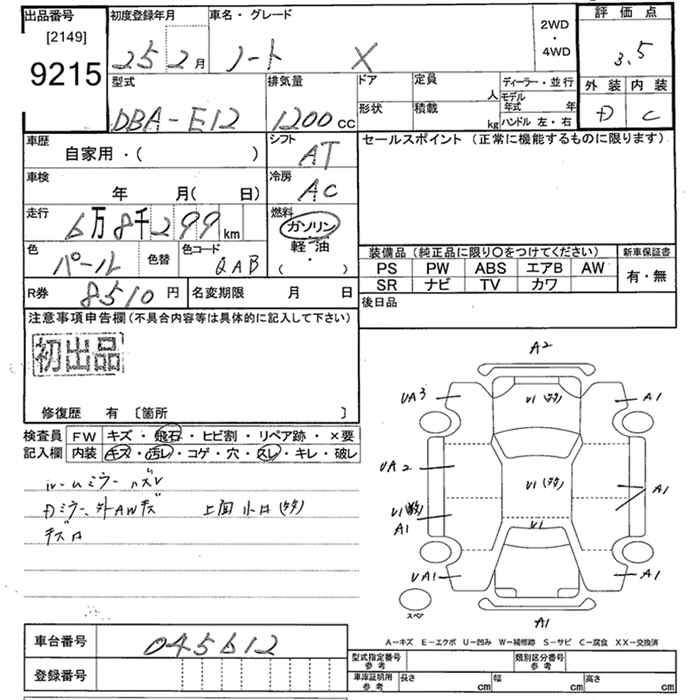 出品番号 初度登録年月 車名・グレード 2WD・4WD 評価点
[2149]
9215 25 2月 ノート X 3.5
型式 排気量 ドア 定員 人 ディーラー・並行 外装 内装
モデル年式 年
DBA-E12 1200cc 形状 積載 kg ハンドル 左・右 D C
車歴 シフト セールスポイント (正常に機能するものに限ります)
自家用・( ) AT
車検 冷房
年 月( 日) AC
走行 燃料
6万8千299km ガソリン・軽油
( ・ )
色 色替 色コード 装備品 (純正品に限り〇をつけてください) 新車保証書
パール QAB PS PW ABS エアB AW 有・無
SR ナビ TV カワ
R券 8510円 名変期限 月 日 後日品
注意事項申告欄 (不具合内容等は具体的に記入して下さい)
初出品
修復歴 有 〔箇所 〕
検査員 FW キズ・飛石・ヒビ割・リペア跡・×要
記入欄 内装 キズ・汚レ・コゲ・穴・スレ・キレ・破レ
ルームミラーハズレ
Dミラー、外AWキズ 上面小凹
A2
UA3 A1
U1
UA2 U1 A1
U1
A1 U1
UA1 A1
スペア A1
A-キズ E-エクボ U-凹み W-補修跡 S-サビ C-腐食 XX-交換済
車台番号 045612
型式指定番号 参考 類別区分番号 参考
登録番号 車庫証明用 参考 長さ cm 幅 cm 高さ cm